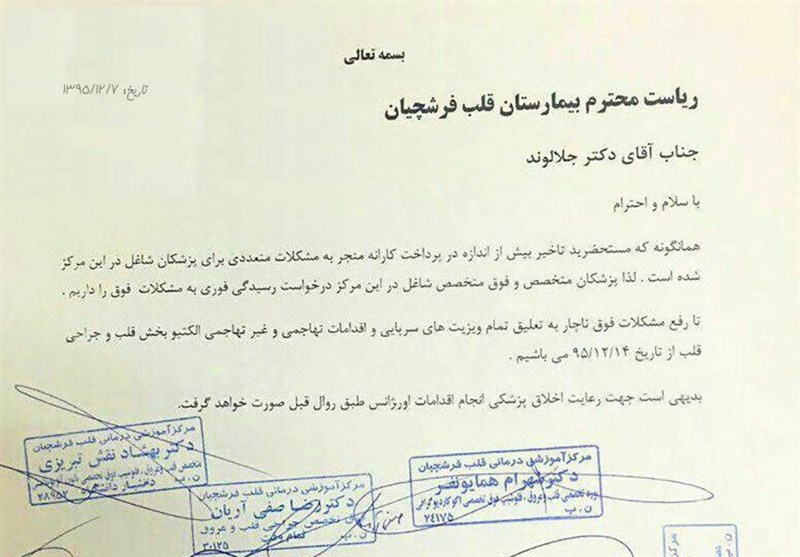 بسمه تعالی
تاریخ: ۱۳۹۵/۱۲/۷
ریاست محترم بیمارستان قلب فرشچیان
جناب آقای دکتر جلالوند
با سلام و احترام
همانگونه که مستحضرید تاخیر بیش از اندازه در پرداخت کارانه منجر به مشکلات متعددی برای پزشکان شاغل در این مرکز
شده است . لذا پزشکان متخصص و فوق متخصص شاغل در این مرکز درخواست رسیدگی فوری به مشکلات فوق را داریم .
تا رفع مشکلات فوق ناچار به تعلیق تمام ویزیت های سرپایی و اقدامات تهاجمی و غیر تهاجمی الکتیو بخش قلب و جراحی
قلب از تاریخ ۹۵/۱۲/۱۴ می باشیم .
بدیهی است جهت رعایت اخلاق پزشکی انجام اقدامات اورژانس طبق روال قبل صورت خواهد گرفت.
مرکز آموزشی درمانی قلب فرشچیان
دکتر بهشاد نقش تبریزی
متخصص قلب و عروق، فلوشیپ فوق تخصصی
دانشیار دانشگاه
ن . پ ۲۸۹۵۲
مرکز آموزشی درمانی قلب فرشچیان
دکتر رضا صفی آریان
فوق تخصص جراحی قلب و عروق
تمام وقت
ن . پ ۳۰۱۲۵
مرکز آموزشی درمانی قلب فرشچیان
دکتر شهرام همایونفر
بورد تخصصی قلب و عروق، فلوشیپ فوق تخصصی اکوکاردیوگرافی
ن . پ ۲۴۱۷۵